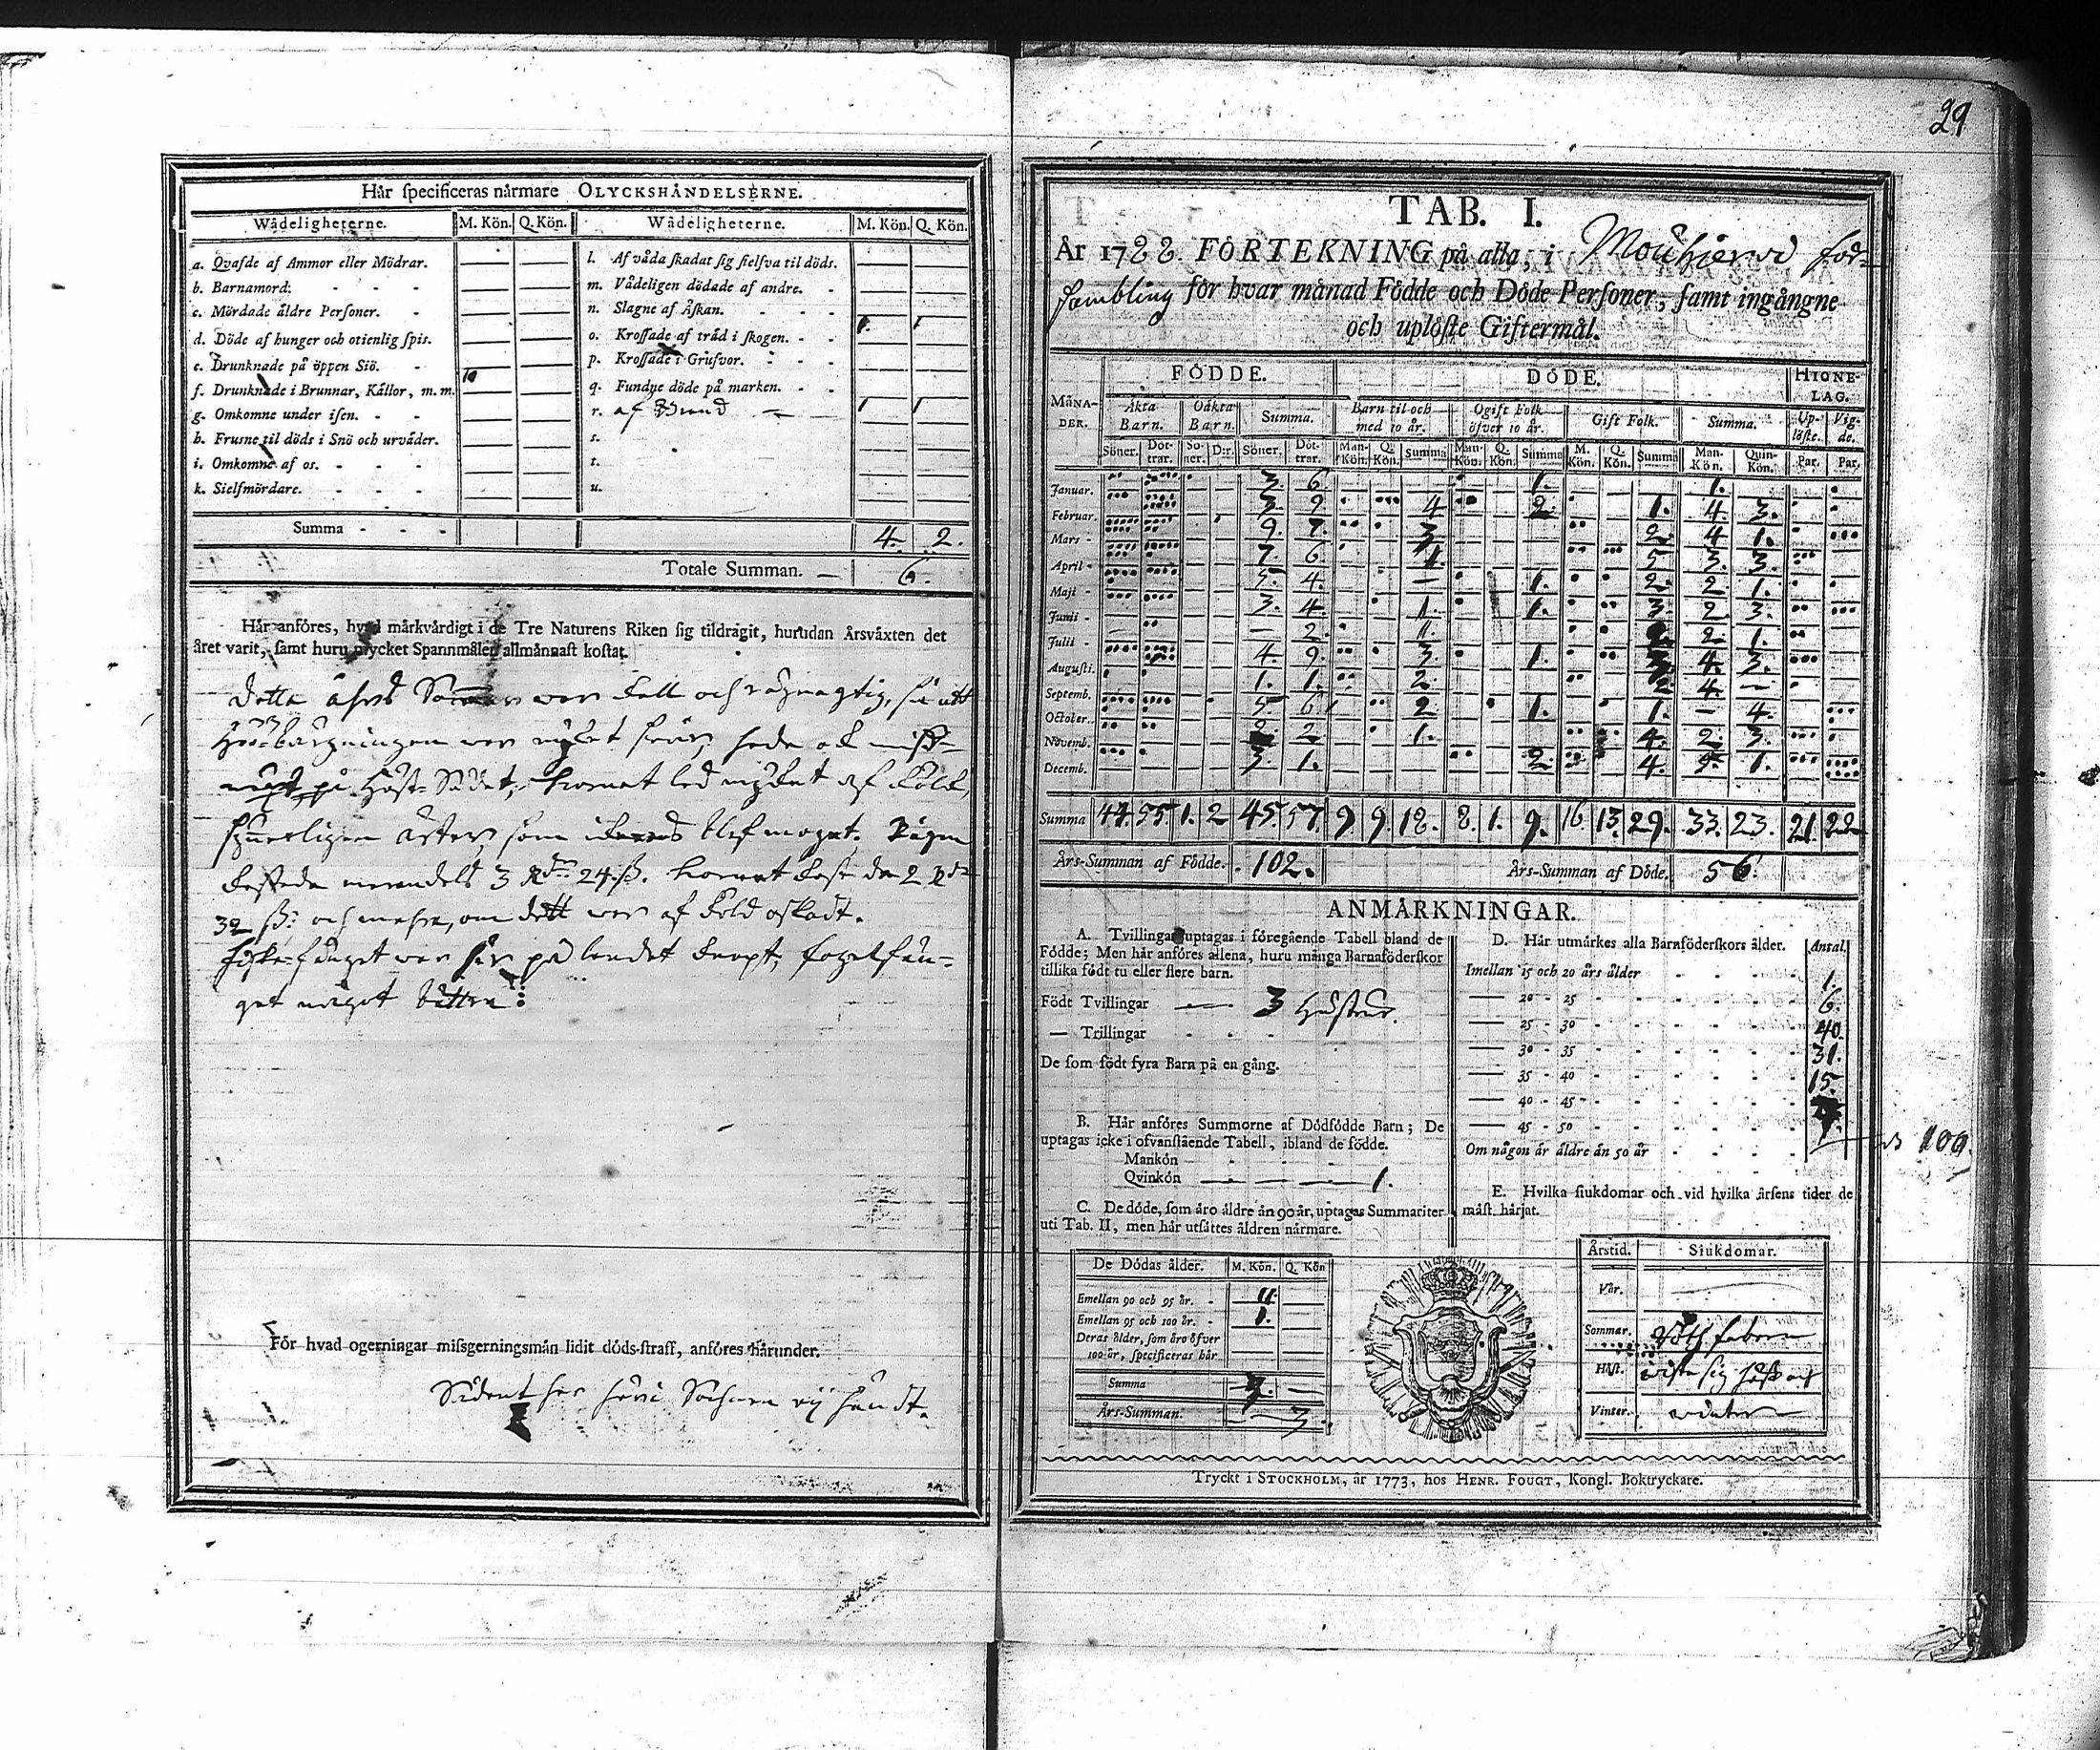 Hår specificeras nårmare OLYCKSHÅNDELSERNE.
Wådeligheterne. M. Kön. Q. Kön. Wådeligheterne. M. Kön. Q. Kön.
a. Qvafde af Ammor eller Mödrar. l. Af våda skadat sig sielfva til döds.
b. Barnamord. m. Vådeligen dödade af andre.
c. Mördade äldre Personer. n. Slagne af Åskan.
d. Döde af hunger och otienlig spis. o. Krossade af tråd i skogen. 1. 1
e. Drunknade på öppen Siö. p. Krossade i Grufvor.
f. Drunknade i Brunnar, Källor, m. m. q. Fundne döde på marken.
g. Omkomne under isen. r. af 1 1
h. Frusne til döds i Snö och urväder. s.
i. Omkomne af os. t.
k. Sielfmördare. u.
Summa 4. 2.
Totale Summan. 6.
Hår anföres, hvad mårkvårdigt i de Tre Naturens Riken sig tildragit, hurudan Årsvåxten det
året varit, samt huru mycket Spannmålen allmånnast kostat.
detta åhrs Sommar war kall och rägnagtig, så att
Höö-bärgningen war myket swår,
på Höst-Sädet, kornet led myket af köld,
som blef moget. Rågen
kostade merendels 3 Rdr 24 ß. kornet 2 Rdr
32 ß: och mehra, om dett war af köld oskadt.
fiske-fånget war här på landet knapt, fogelfån-
get något bättre
För hvad ogerningar missgerningsmån lidit döds-straff, anföres hårunder.
Sådant har händt.
29
TAB. I.
År 1788. FÖRTEKNING på alla, i Mouhijervi för-
sambling för hvar månad Födde och Döde Personer, samt ingångne
och uplöste Giftermål.
FÖDDE. DÖDE. HIONE-
LAG.
MÅNA-
DER. Åkta
Barn. Oåkta
Barn. Summa. Barn til och
med 10 år. Ogift Folk
öfver 10 år. Gift Folk. Summa. Up-
löste. Vig-
de.
Söner. Döt-
trar. Sö-
ner. D:r. Söner. Döt-
trar. Man-
Kön. Q.
Kön. Summa Man-
Kön. Q.
Kön. Summa M.
Kön. Q.
Kön. Summa Man-
Kön. Quin-
Kön. Par. Par.
Januar. 3. 6. 1. 1.
Februar. 3. 9 4 2. 1. 4. 3.
Mars 9. 7. 3 2. 4 1.
April 7. 6. 1. 5 3. 3.
Maji 5. 4. 1. 2. 2 1.
Junii 3. 4. 1. 1. 3. 2. 3.
Julii 2. 1. 2. 1.
Augusti. 4. 9. 3. 1. 4. 3.
Septemb. 1. 1. 2. 2 4.
October. 5. 6. 2. 1. 1. 4.
Novemb. 2. 1. 4. 2. 3.
Decemb. 3. 1. 2 4. 1.
Summa 44. 55 1. 2 45. 57. 9. 9. 18. 8. 1. 9. 16 13. 29. 33. 23. 21. 22
Års-Summan af Födde. 102. Års-Summan af Döde. 56.
ANMÅRKNINGAR.
A. Tvillingar uptagas i föregående Tabell bland de
Födde; Men hår anföres allena, huru många Barnaföderskor
tillika födt tu eller flere barn.
Födt Tvillingar 3 Hustrur.
— Trillingar
De som födt fyra Barn på en gång.
B. Hår anföres Summorne af Dödfödde Barn; De
uptagas icke i ofvanstående Tabell, ibland de födde.
Mankön
Qvinkön 1.
C. De döde, som åro åldre ån 90 år, uptagas Summariter
uti Tab. II, men hår utsåttes åldren nårmare.
De Dödas ålder. M. Kön. Q. Kön
Emellan 90 och 95 år.
Emellan 95 och 100 år. 1.
Deras ålder, som åro öfver
100 år, specificeras hår
Summa
Års-Summan. 3.
D. Hår utmårkes alla Barnföderskors ålder. Antal.
Imellan 15 och 20 års ålder 1.
20 - 25 6.
25 - 30 40.
30 - 35 31.
35 - 40 15.
40 - 45
45 - 50
Om någon år åldre ån 50 år
100.
E. Hvilka siukdomar och vid hvilka årsens tider de
måst hårjat.
Årstid. Siukdomar.
Vår.
Sommar. Röthfebern
Höst. wiste sig höst och
Vinter. winter
Tryckt i STOCKHOLM, år 1773, hos HENR. FOUGT, Kongl. Boktryckare.